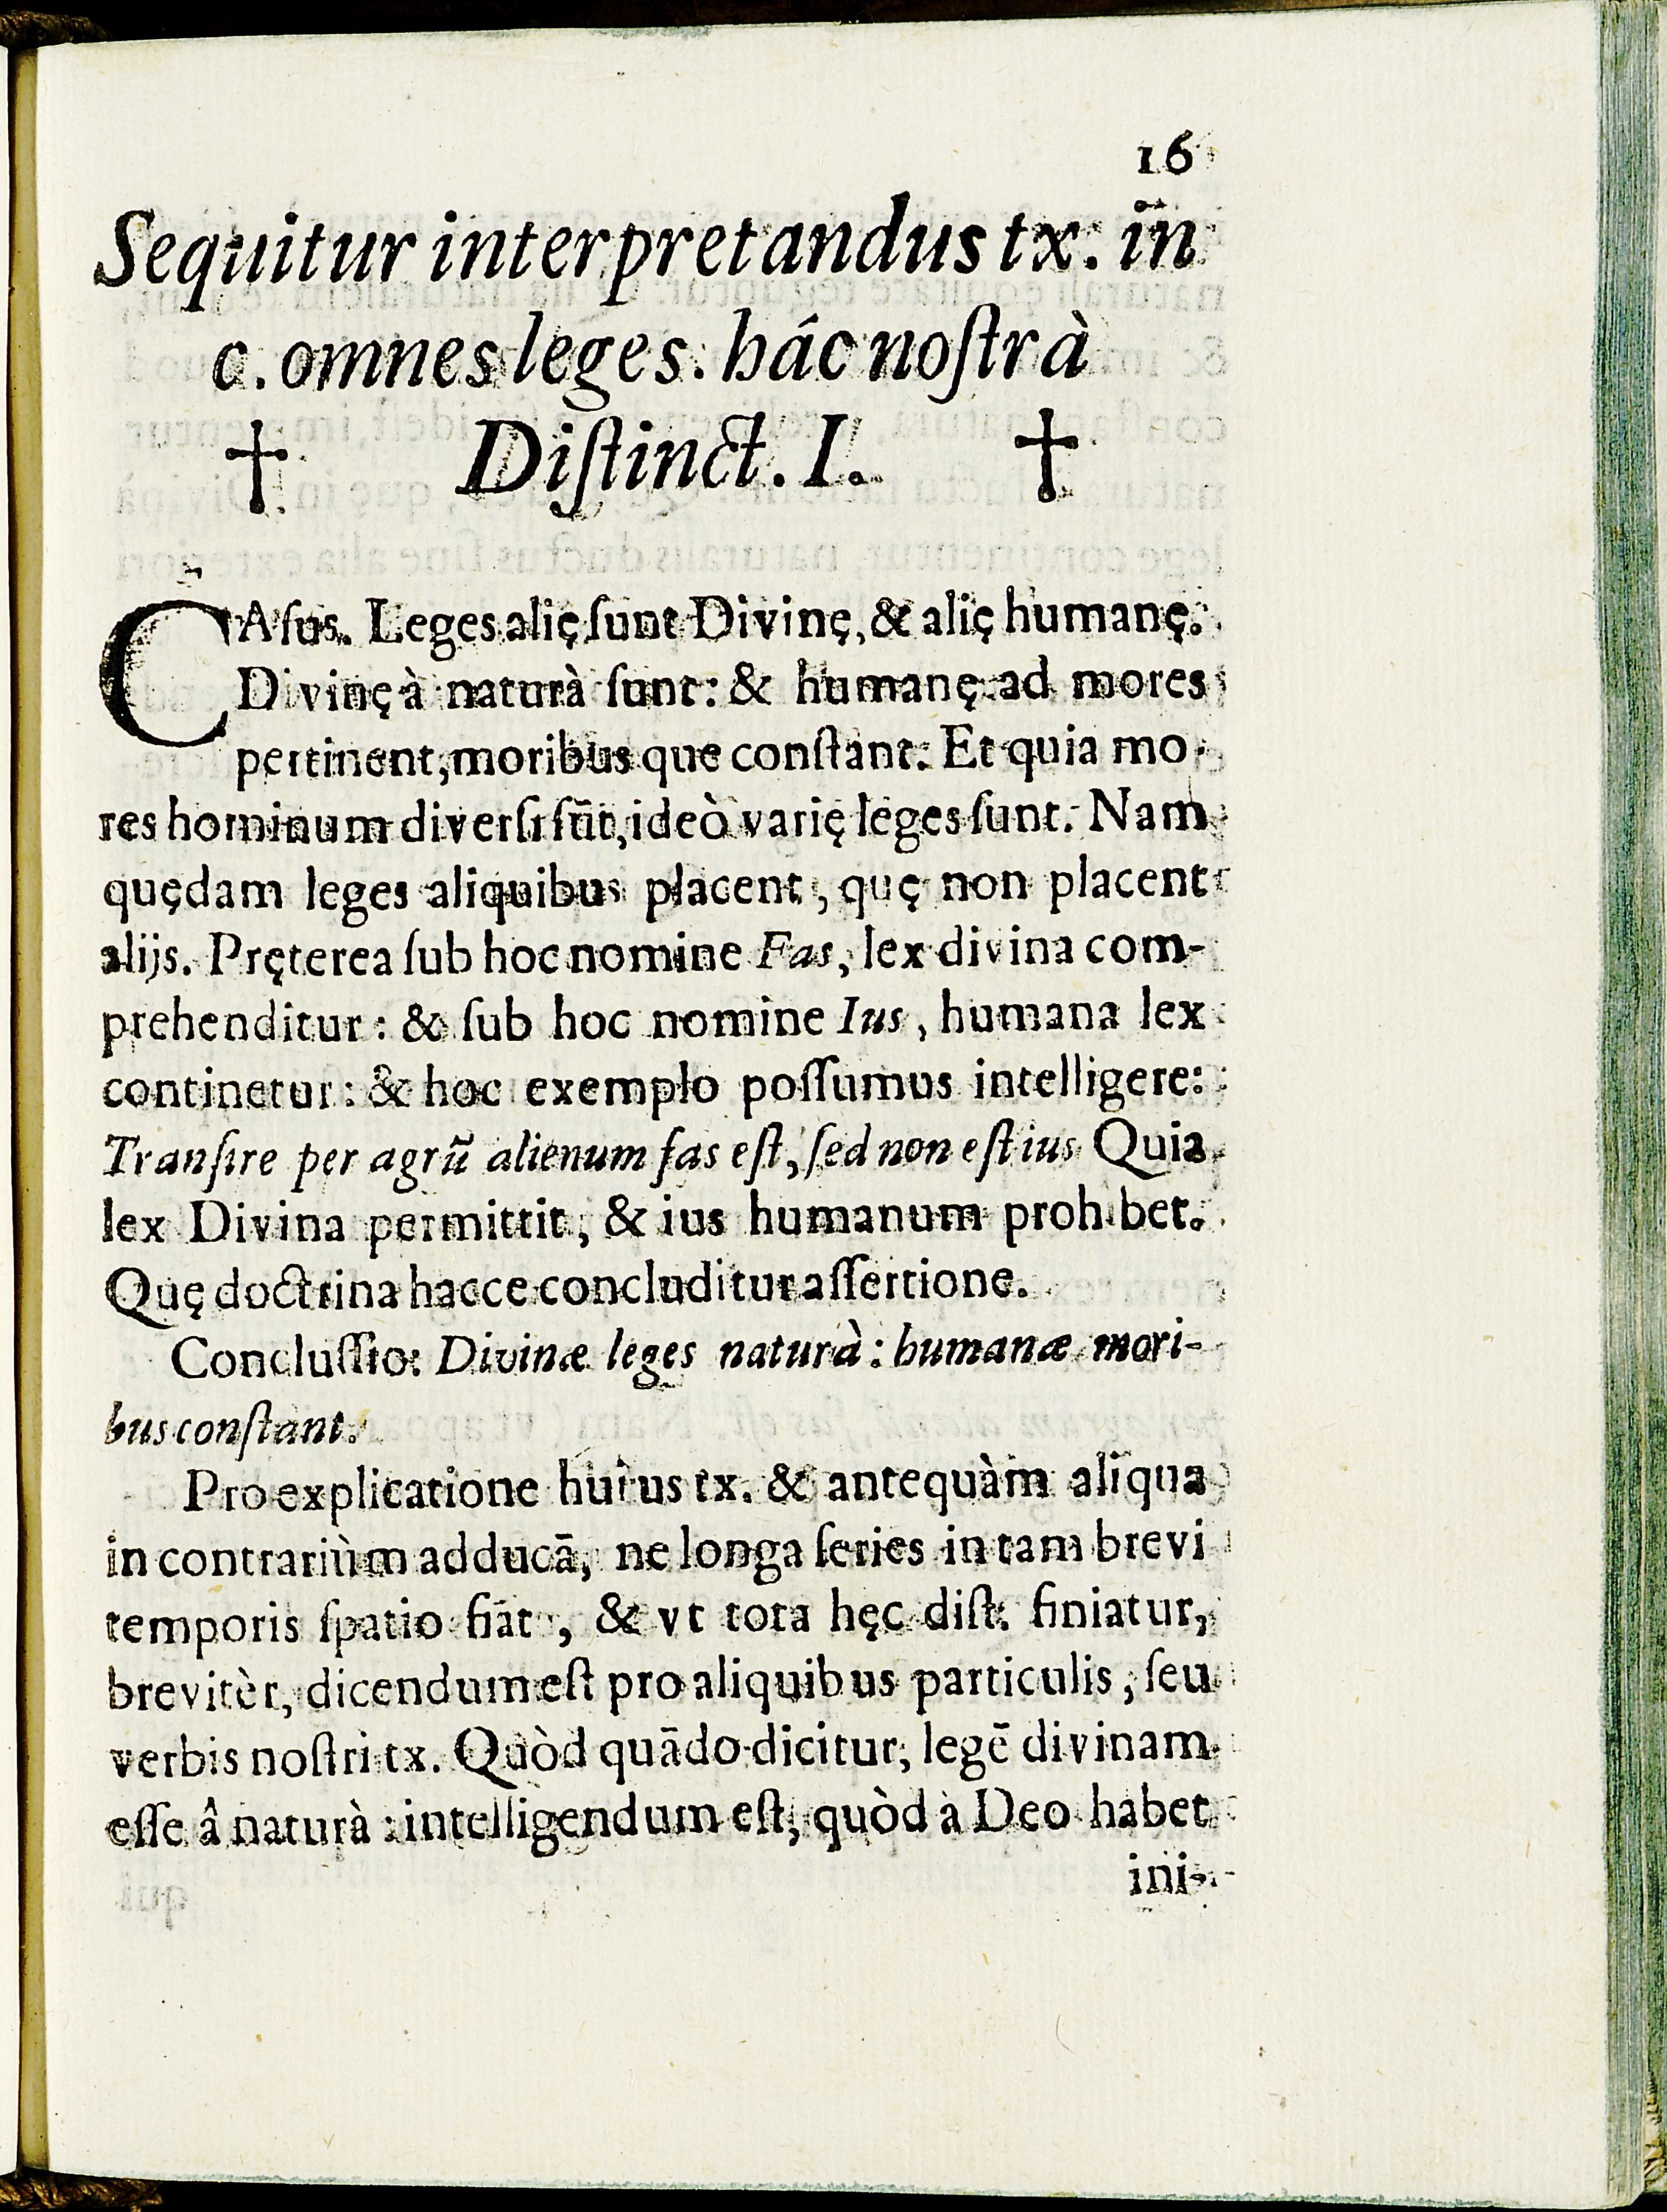 16
Sequitur interpretandus tx. in
c. omnes leges. hác noſtrà
† Diſtinct. I. †
CAſus. Leges alię ſunt Divinę, & alię humanę.
Divinę à naturà ſunt: & humanę ad mores
pertinent, moribus que conſtant: Et quia mo-
res hominum diverſi sūt, ideò varię leges ſunt. Nam
quędam leges aliquibus placent, quę non placent
alijs. Pręterea ſub hoc nomine Fas, lex divina com-
prehenditur: & ſub hoc nomine Ius, humana lex
continetur: & hoc exemplo poſſumus intelligere:
Tranſire per agrū alienum fas eſt, ſed non eſt ius Quia
lex Divina permittit, & ius humanum prohibet.
Quę doctrina hacce concluditur aſſertione.
Concluſſio: Divinæ leges naturà: humanæ mori-
bus conſtant.
Pro explicatione huius tx. & antequàm aliqua
in contrariùm adducā, ne longa ſeries in tam brevi
temporis ſpatio fiat, & vt tota hęc diſt. finiatur,
brevitèr, dicendum eſt pro aliquibus particulis, ſeu
verbis noſtri tx. Quòd quādo dicitur, legē divinam
eſſe â naturà: intelligendum eſt, quòd à Deo habet
ini-